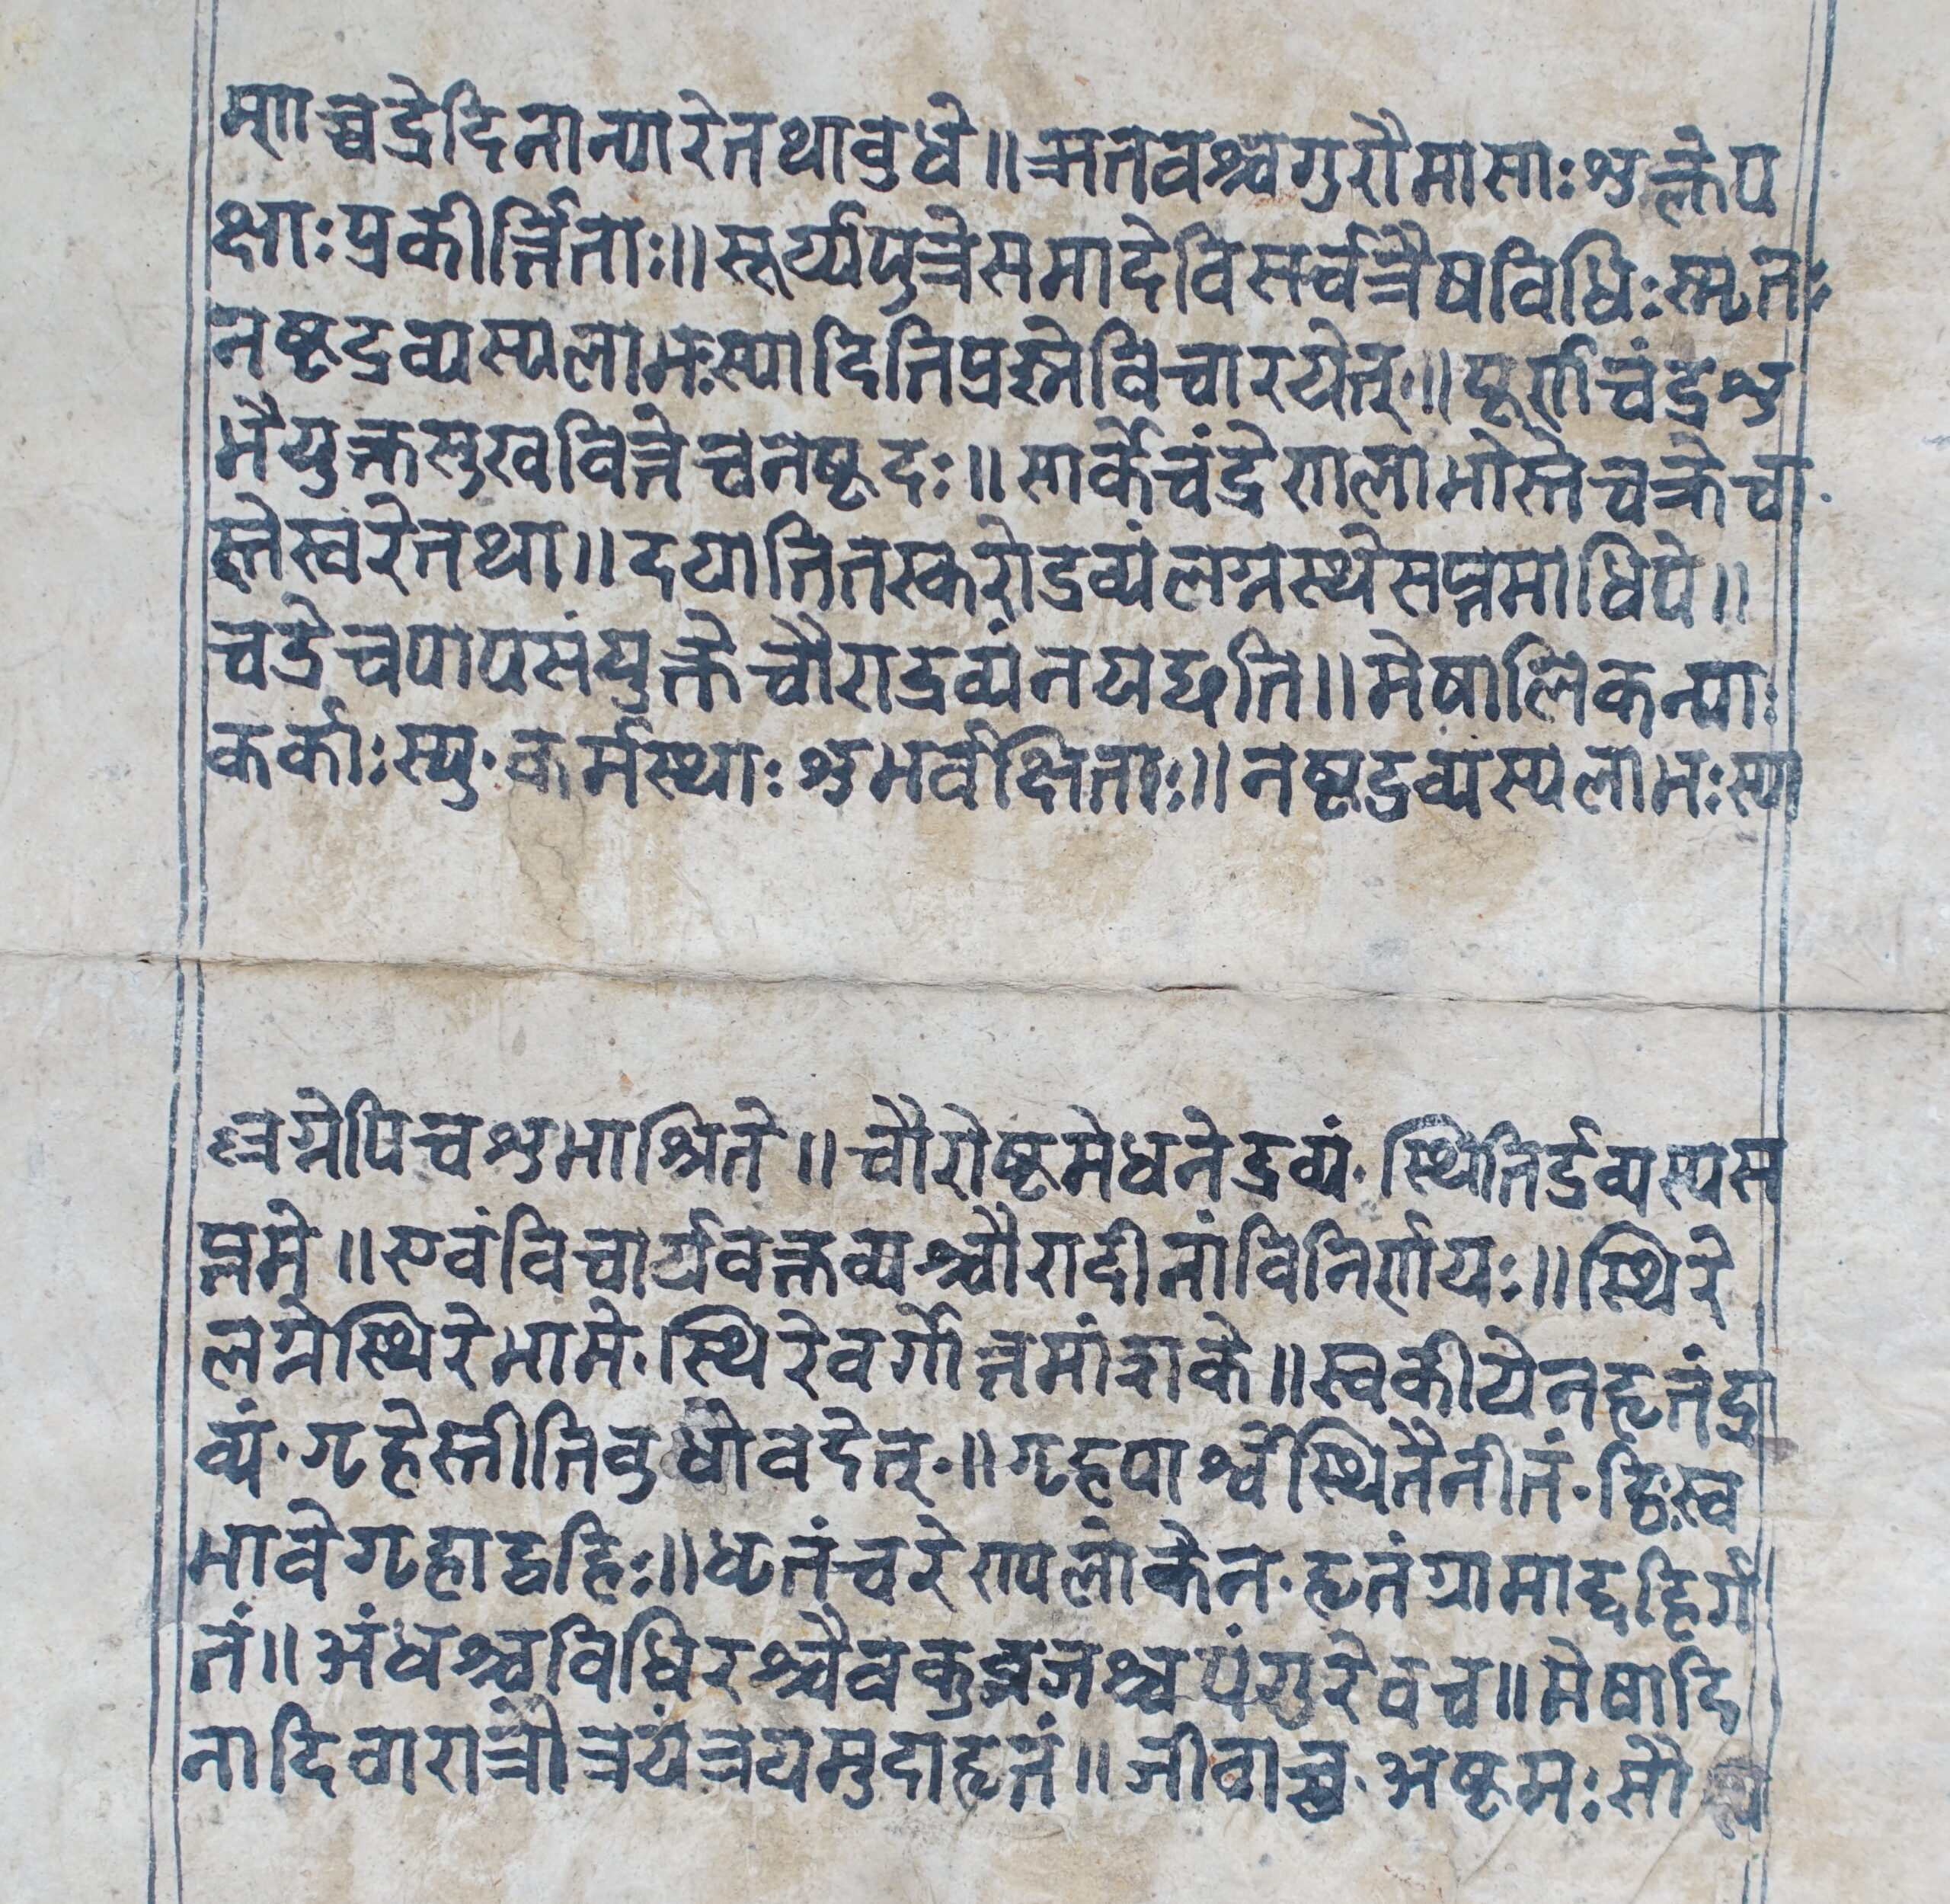 माा च्चद्रेदिनान्यारेतथावुधे॥ ऋतवश्चगुरौमासाः शुक्लेप
क्षाः प्रकीर्त्तिताः॥ सूर्य्यपुत्रेसमादेविसर्वत्रैषविधिः स्मृतः
नष्टद्रव्यस्यलाभःस्यादितिप्रश्नेविचारयेत्॥ पूर्णचंद्रशु
भैयुक्तसुखवित्तेचनष्टदः॥ सार्केचंद्रेणलाभोस्तेचक्रेचा
स्तेस्वरेतथा॥ दयातितस्करोद्रव्यंलग्नस्थेसप्तमाधिपे॥
चद्रेचपापसंयुक्तेचौराद्रव्यंनयछति॥ मेषालिकन्याः
कर्काः स्यु. कर्मस्थाः शुभवीक्षिताः॥ नष्टद्रव्यस्यलाभः स्या
ल्लग्नेपिचशुभाश्रिते॥ चौरोष्टमेधनेद्रव्यं. स्थितिर्द्रव्यस्यस
प्तमे॥ एवंविचार्यवक्तव्यश्चौरादीनांविनिर्णयः॥ स्थिरे
लग्नेस्थिरेभामे. स्थिरेवर्गोत्तमांशके॥ स्वकीयेनहृतंद्र
व्यं. गृहेस्तीतिवुधोवदेत्॥ गृहपार्श्वेस्थितैनीतं. द्विःस्व
भावेगृहाद्वहिः॥ धृतंचरेणपलांकेन. हृतंग्रामाद्वहिर्ग
तं॥ अंधश्चविधिरश्चैवकुब्जश्चपंगुरेवच॥ मेषादि
नादिवारात्रौत्रयंत्रयमुदाहृतं॥ जीवाच्च. अष्टमः सौ